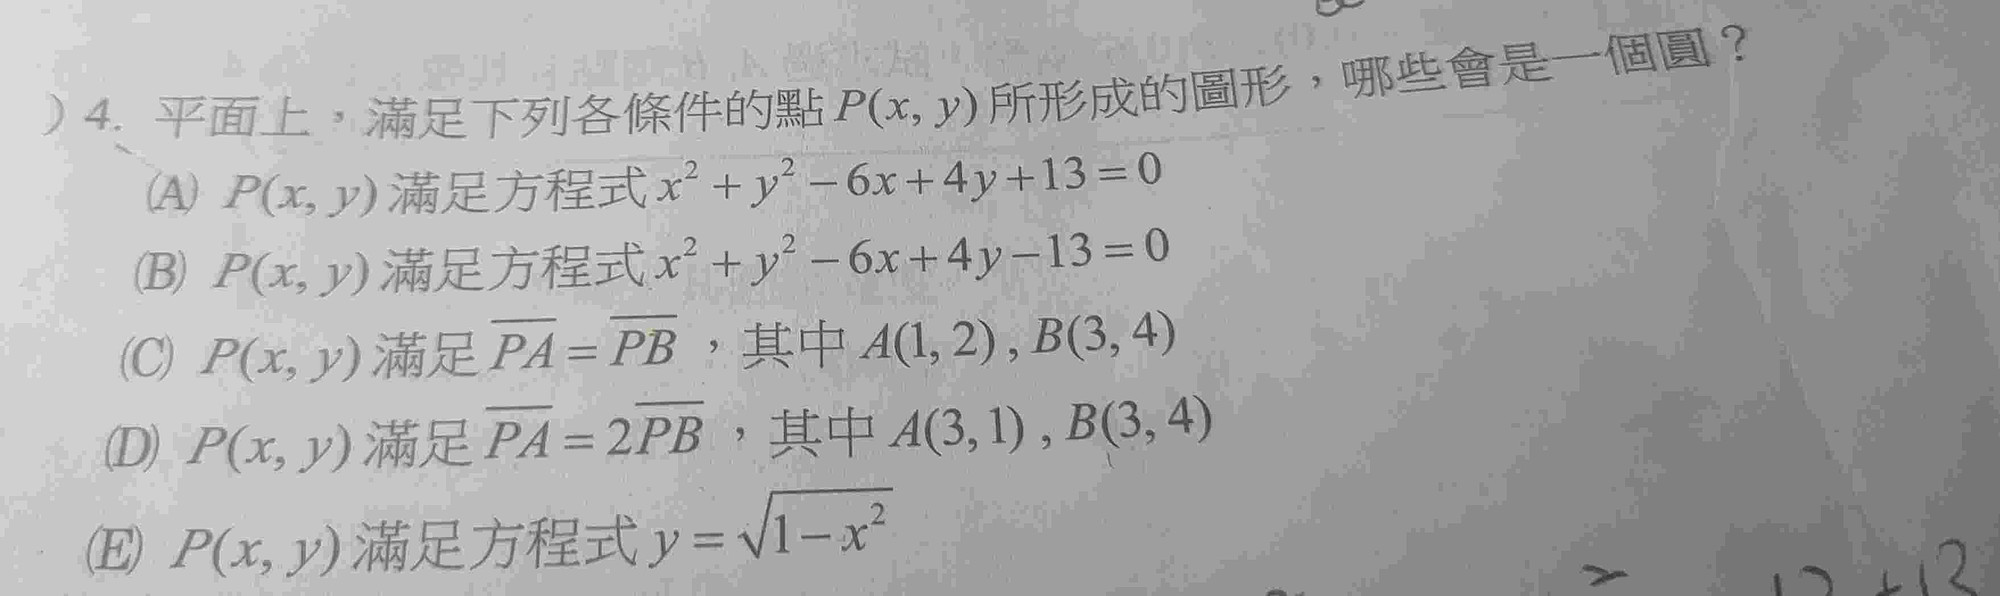 )4. 平面上，滿足下列各條件的點 P(x, y) 所形成的圖形，哪些會是一個圓？
(A) P(x, y) 滿足方程式 x² + y² − 6x + 4y + 13 = 0
(B) P(x, y) 滿足方程式 x² + y² − 6x + 4y − 13 = 0
(C) P(x, y) 滿足 \overline{PA} = \overline{PB} ，其中 A(1, 2) , B(3, 4)
(D) P(x, y) 滿足 \overline{PA} = 2\overline{PB} ，其中 A(3, 1) , B(3, 4)
(E) P(x, y) 滿足方程式 y = \sqrt{1 − x²}